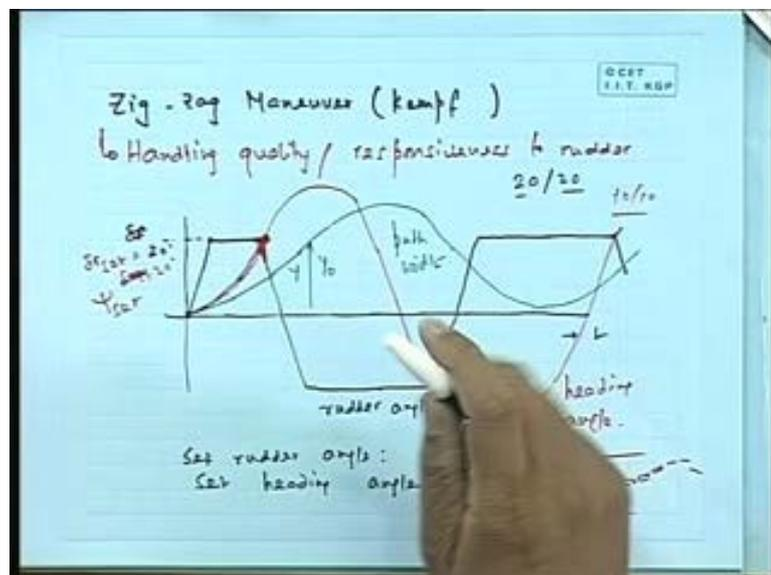 © CET
I.I.T. KGP
Zig-Zag Maneuver (Kempf)
↳ Handling quality / responsiveness to rudder
20/20
10/10
= 20°
ψset
y
y₀
path
width
→ t
heading
angle.
rudder
Set rudder angle:
Set heading angle